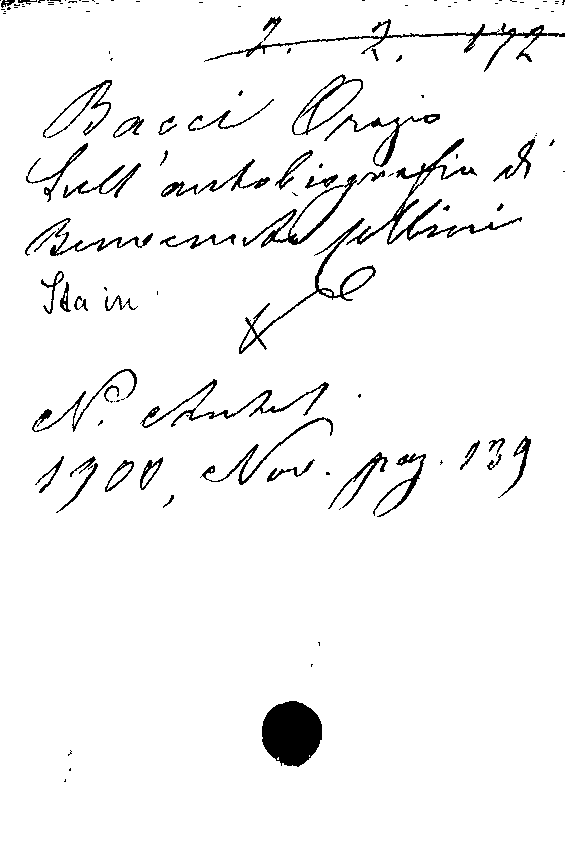 2. 2. 172
Bacci Orazio
Sull'autobiografia di
Benvenuto Cellini
Sta in
N. Antol.
1900, Nov. pag. 139